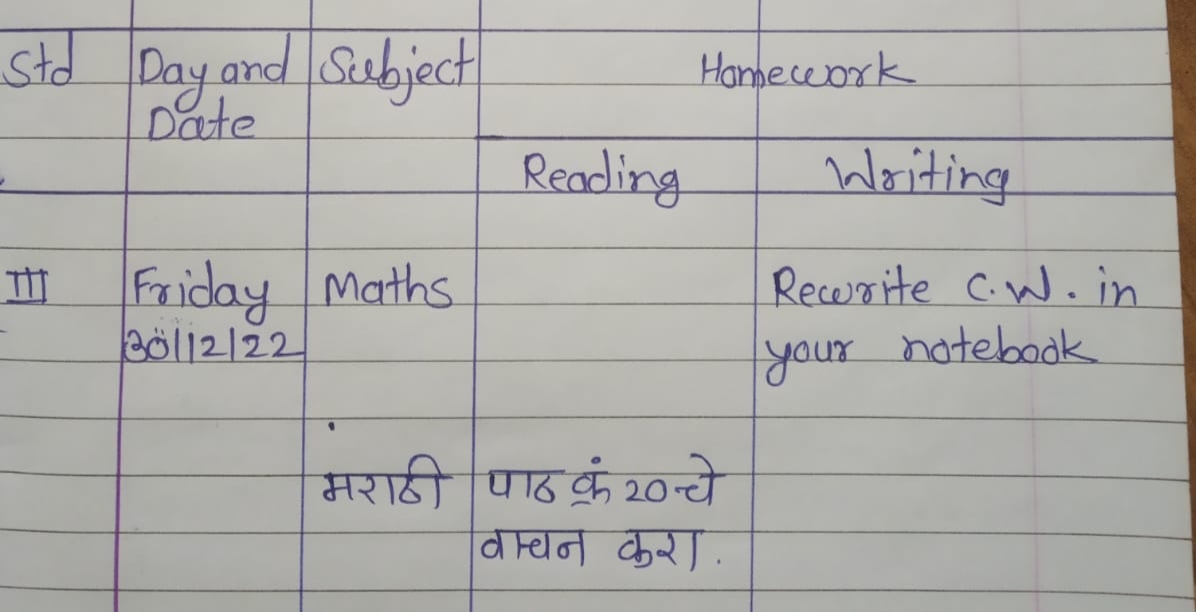 Std Day and Subject Homework
Date
Reading Writing
III Friday Maths Rewrite C.W. in
30/12/22 your notebook
मराठी पाठ क्रं 20 चे
वाचन करा.